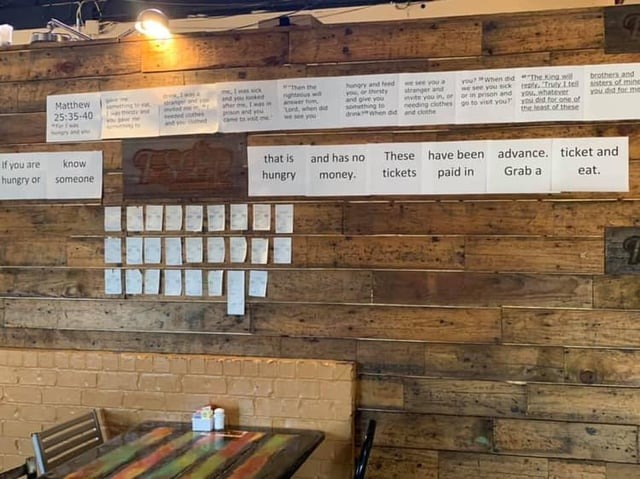 Matthew
25:35-40
³⁵ For I was
hungry and you
gave me
something to eat,
I was thirsty and
you gave me
something to
drink, I was a
stranger and you
invited me in, ³⁶ I
needed clothes
and you clothed
me, I was sick
and you looked
after me, I was in
prison and you
came to visit me.'
³⁷ "Then the
righteous will
answer him,
'Lord, when did
we see you
hungry and feed
you, or thirsty
and give you
something to
drink? ³⁸ When did
we see you a
stranger and
invite you in, or
needing clothes
and clothe
you? ³⁹ When did
we see you sick
or in prison and
go to visit you?'
⁴⁰ "The King will
reply, 'Truly I tell
you, whatever
you did for one of
the least of these
brothers and
sisters of mine
you did for me
If you are know
hungry or someone
that is and has no These have been advance. ticket and
hungry money. tickets paid in Grab a eat.